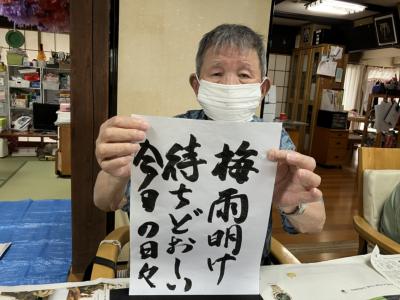 梅雨明け
待ちどおしい
今日の日々